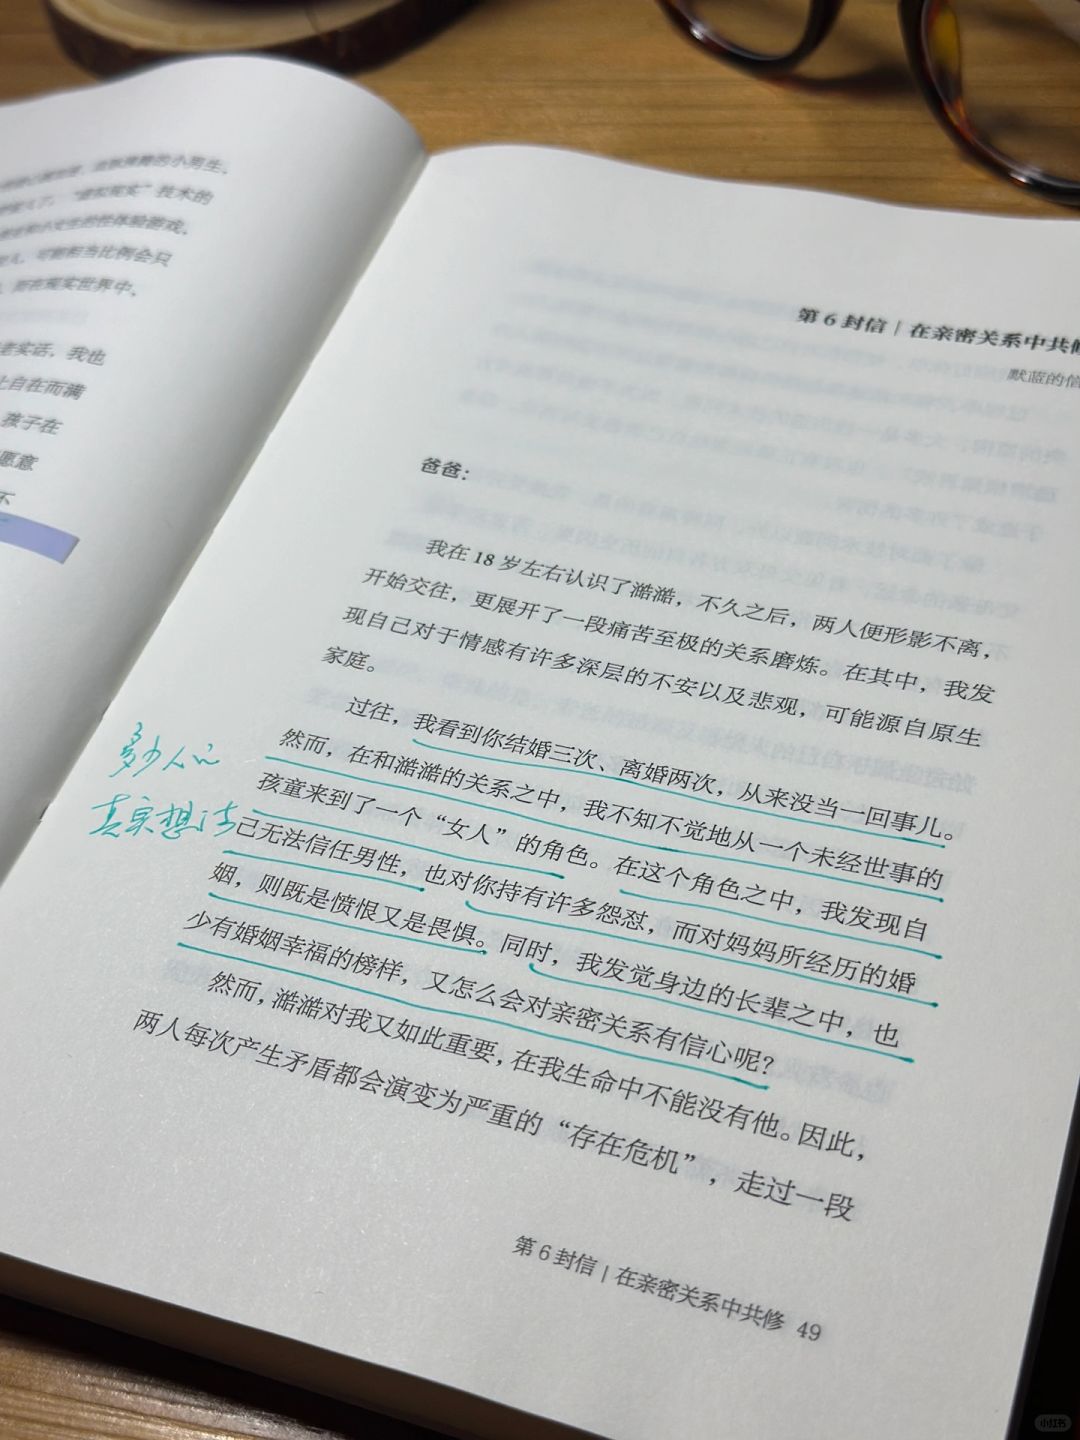 的小男生，
技术的
可能相当比例会只
而在现实世界中，
老实话，我也
上自在而满
孩子在
愿意
不
第6封信｜在亲密关系中共修
默蓝的信
爸爸：
我在18岁左右认识了澔澔，不久之后，两人便形影不离，
开始交往，更展开了一段痛苦至极的关系磨炼。在其中，我发
现自己对于情感有许多深层的不安以及悲观，可能源自原生
家庭。
过往，我看到你结婚三次、离婚两次，从来没当一回事儿。
然而，在和澔澔的关系之中，我不知不觉地从一个未经世事的
孩童来到了一个“女人”的角色。在这个角色之中，我发现自
己无法信任男性，也对你持有许多怨怼，而对妈妈所经历的婚
姻，则既是愤恨又是畏惧。同时，我发觉身边的长辈之中，也
少有婚姻幸福的榜样，又怎么会对亲密关系有信心呢？
然而，澔澔对我又如此重要，在我生命中不能没有他。因此，
两人每次产生矛盾都会演变为严重的“存在危机”，走过一段
多少人的
真实想法
第6封信｜在亲密关系中共修 49
小红书